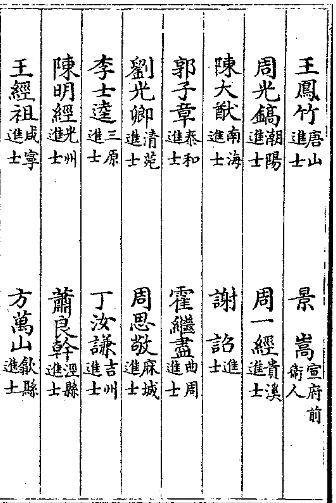 王鳳竹唐山進士 景嵩宣府前衛人
周光鎬潮陽進士 周一經貴溪進士
陳大猷南海進士 謝詔進士
郭子章泰和進士 霍繼盡曲周進士
劉光卿清苑進士 周思敬麻城進士
李士達三原進士 丁汝謙吉州進士
陳明經光州進士 蕭良幹涇縣進士
王經祖咸寧進士 方萬山歙縣進士